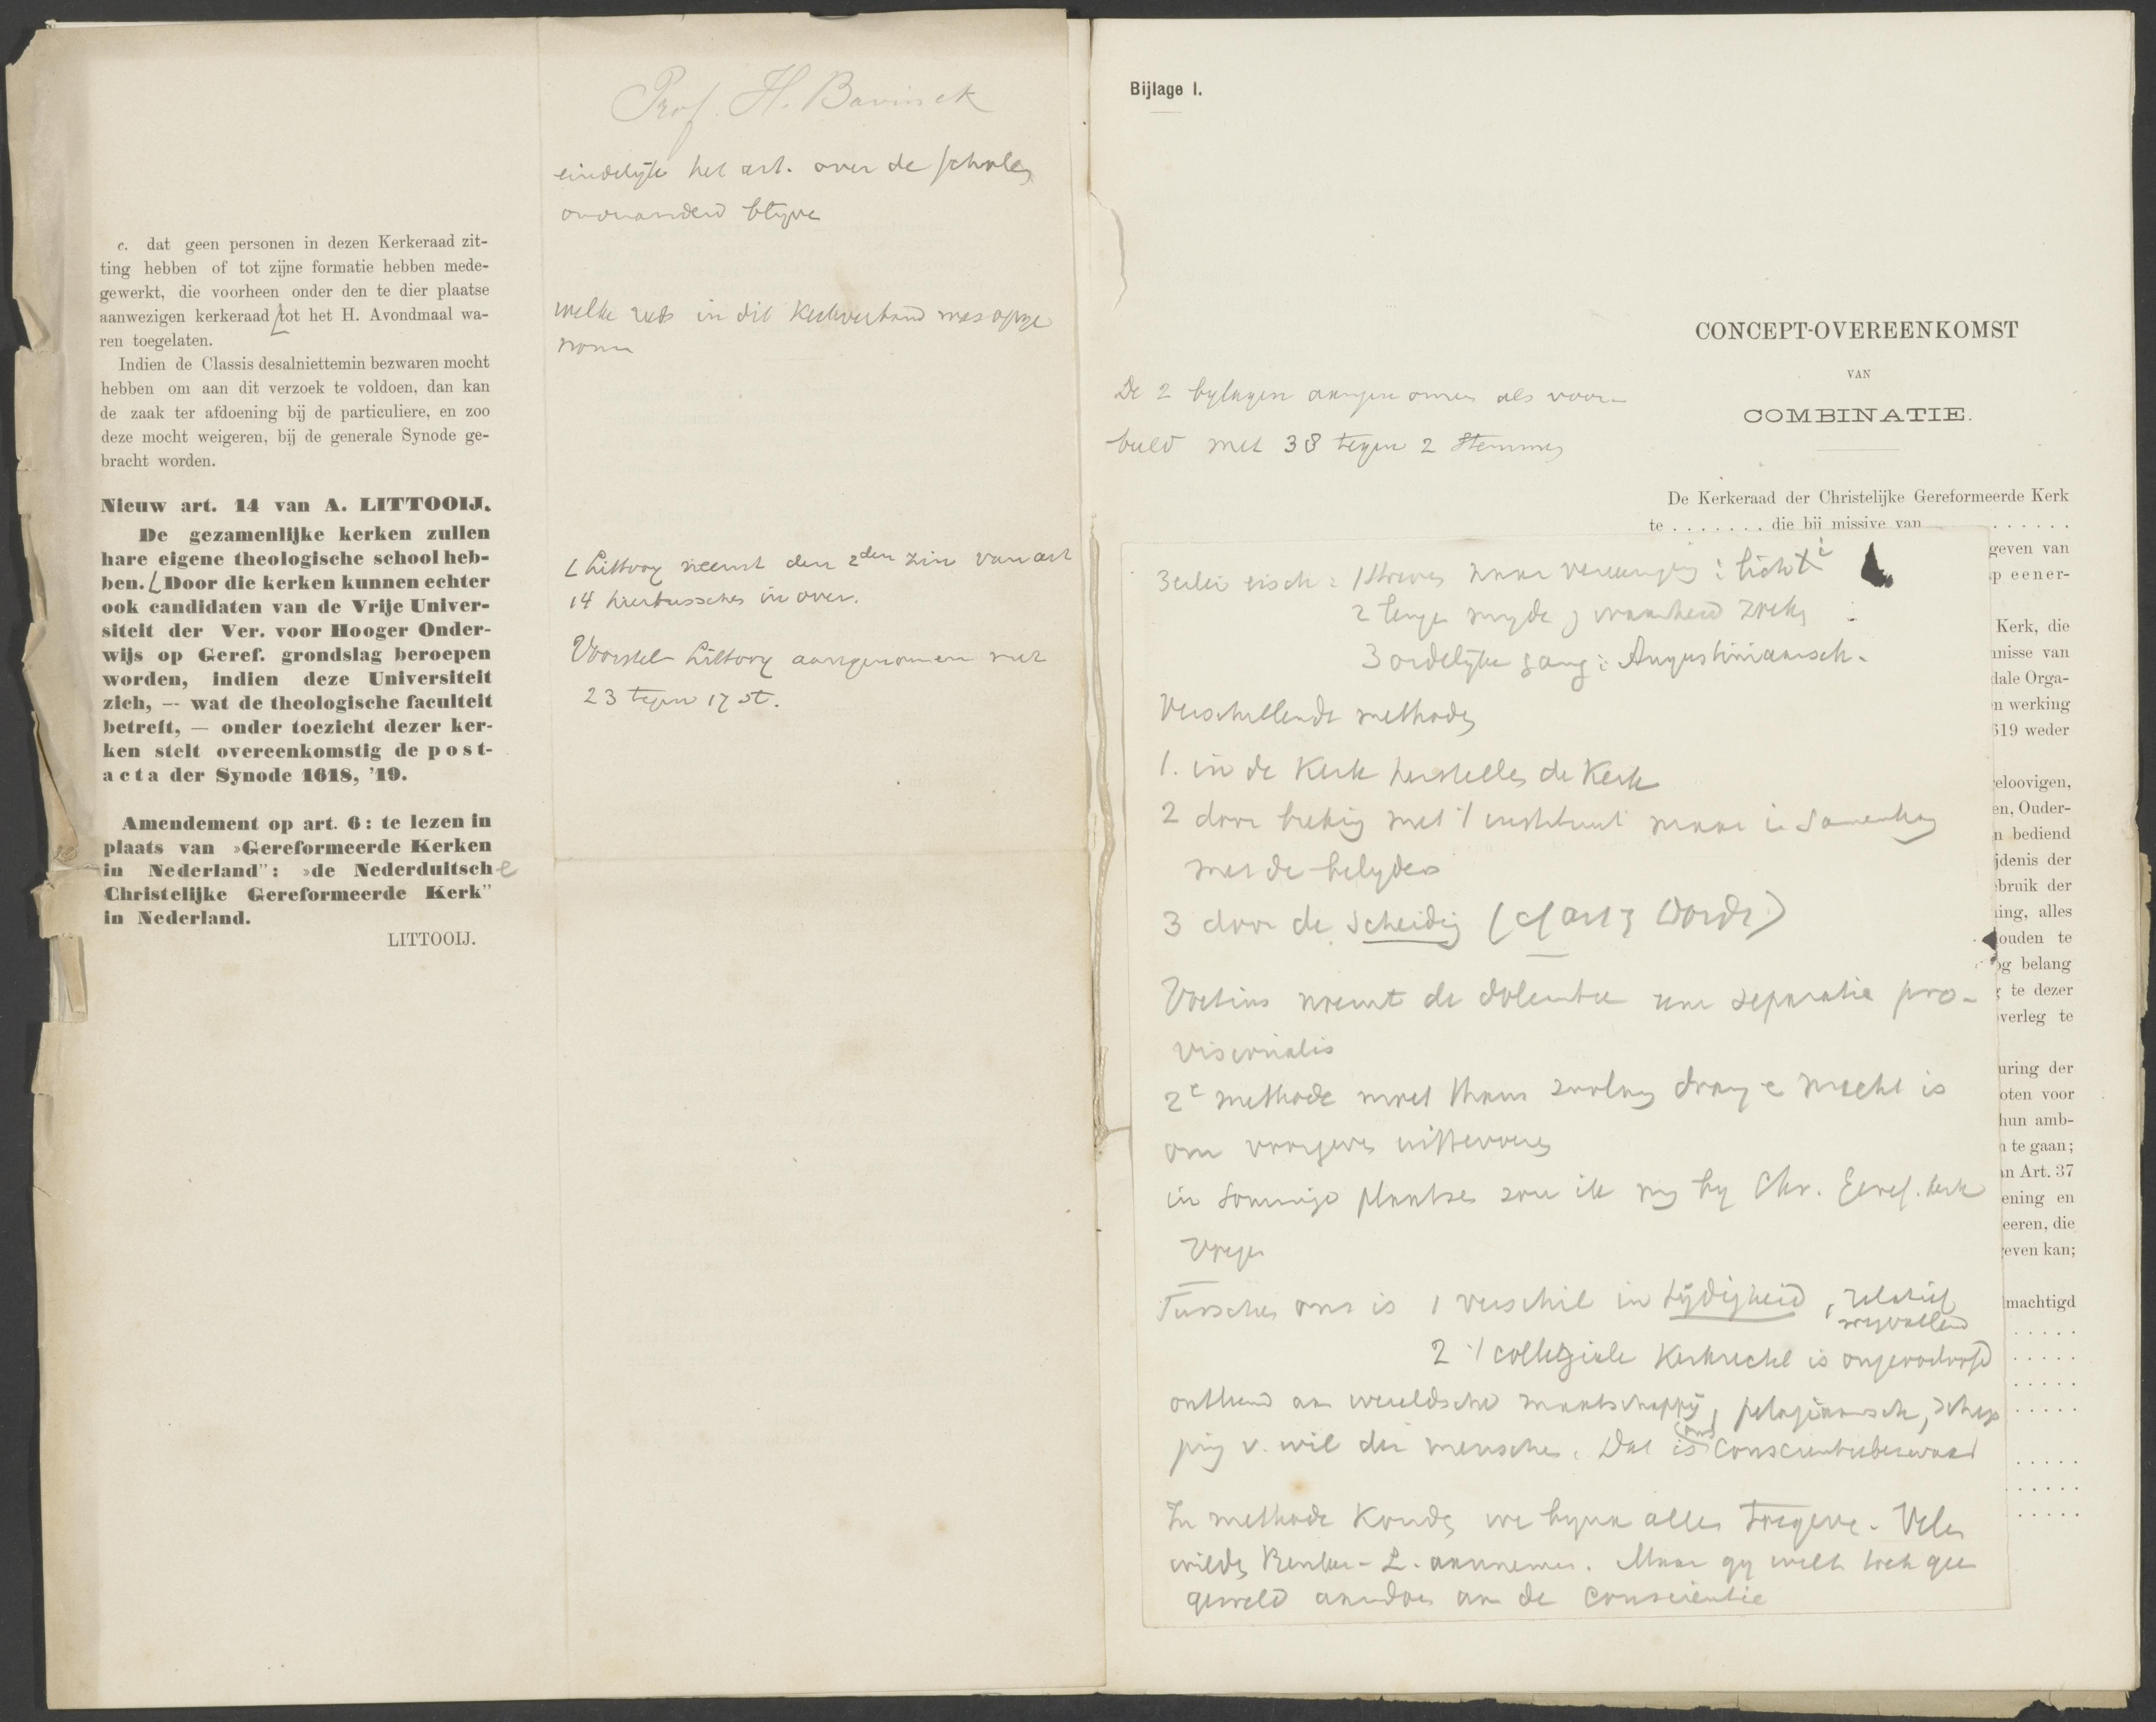 c. dat geen personen in dezen Kerkeraad zit-
ting hebben of tot zijne formatie hebben mede-
gewerkt, die voorheen onder den te dier plaatse
aanwezigen kerkeraad tot het H. Avondmaal wa-
ren toegelaten.
Indien de Classis desalniettemin bezwaren mocht
hebben om aan dit verzoek te voldoen, dan kan
de zaak ter afdoening bij de particuliere, en zoo
deze mocht weigeren, bij de generale Synode ge-
bracht worden.
Nieuw art. 14 van A. LITTOOIJ.
De gezamenlijke kerken zullen
hare eigene theologische school heb-
ben. Door die kerken kunnen echter
ook candidaten van de Vrije Univer-
siteit der Ver. voor Hooger Onder-
wijs op Geref. grondslag beroepen
worden, indien deze Universiteit
zich, — wat de theologische faculteit
betreft, — onder toezicht dezer ker-
ken stelt overeenkomstig de post-
acta der Synode 1618, '19.
Amendement op art. 6: te lezen in
plaats van »Gereformeerde Kerken
in Nederland": »de Nederduitsche
Christelijke Gereformeerde Kerk"
in Nederland.
LITTOOIJ.
Prof. H. Bavinck
eindelijk het art. over de scholen
onveranderd blijve
welke reeds in dit Kerkverband was opge
nomen
Littooy neemt den 2den zin van art
14 hiertusschen in over.
Voorstel Littooy aangenomen met
23 tegen 17 st.
Bijlage I.
De 2 bylagen aangenomen als voor-
beeld met 38 tegen 2 stemmen
CONCEPT-OVEREENKOMST
VAN
COMBINATIE.
De Kerkeraad der Christelijke Gereformeerde Kerk
te . . . . . . . die bij missive van . . . . . .
geven van
p eener-
Kerk, die
nnisse van
dale Orga-
n werking
619 weder
eloovigen,
en, Ouder-
n bediend
jdenis der
ebruik der
ing, alles
ouden te
og belang
te dezer
verleg te
uring der
oten voor
hun amb-
n te gaan;
an Art. 37
ening en
eeren, die
even kan;
machtigd
3erlei eisch: 1 streven naar vereeniging:
2 leugen myde, waarheid zoeke
3 ordelyke gang: Augustiniaansch.
Verschillende methoden
1. in de Kerk herstellen de Kerk
2 door breking met 't instituut maar in samenhang
met de belyders
3 door de scheiding (cf art 3 Dordt)
Voetius noemt de doleantie een separatio pro-
visionalis
2e methode moet thans zoolang draag- macht is
om
in sommige plaatsen zou ik my by Chr. Geref. kerk
voegen
Tusschen ons is 1 verschil in tijdigheid, relatief
wegvallend
2 't collegiale Kerkrecht is ongeoorloofd
ontleend aan wereldsche maatschappij, pelagiaansch, schep
ping v. wil der menschen. Dat is ons conscientiebezwaar
In methode konden we byna alles toegeven. Velen
wilden aannemen. Maar gy wilt toch geen
geweld aandoen aan de conscientie